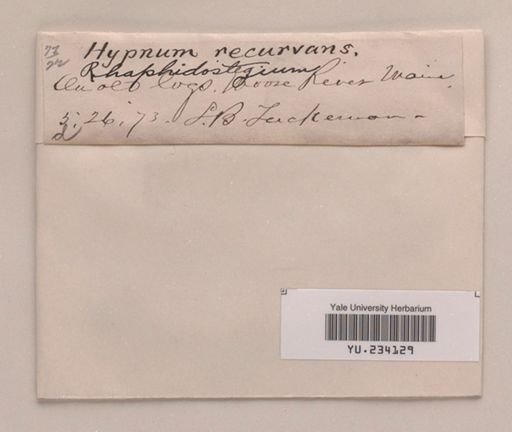 73
Hypnum recurvans.
Rhaphidostegium
On old logs. Moose River Maine.
5. 26, 73. L. B. Tuckerman -
Yale University Herbarium
YU.234129